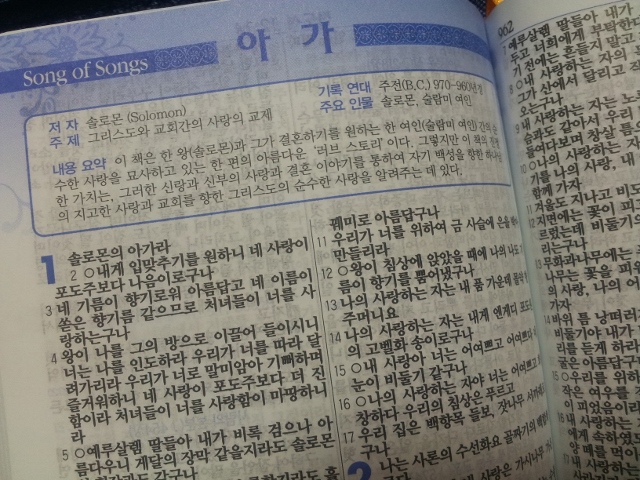 Song of Songs
아 가
저 자 솔로몬 (Solomon)
주 제 그리스도와 교회간의 사랑의 교제
기록 연대 주전(B.C.) 970-960년경
주요 인물 솔로몬, 술람미 여인
내용 요약 이 책은 한 왕(솔로몬)과 그가 결혼하기를 원하는 한 여인(술람미 여인) 간의 순
수한 사랑을 묘사하고 있는 한 편의 아름다운 '러브 스토리'이다. 그렇지만 이 책의 진정
한 가치는, 그러한 신랑과 신부의 사랑과 결혼 이야기를 통하여 자기 백성을 향한 하나님
의 지고한 사랑과 교회를 향한 그리스도의 순수한 사랑을 알려주는 데 있다.
1 솔로몬의 아가라
2 ○내게 입맞추기를 원하니 네 사랑이
포도주보다 나음이로구나
3 네 기름이 향기로워 아름답고 네 이름이
쏟은 향기름 같으므로 처녀들이 너를 사
랑하는구나
4 왕이 나를 그의 방으로 이끌어 들이시니
너는 나를 인도하라 우리가 너를 따라 달
려가리라 우리가 너로 말미암아 기뻐하며
즐거워하니 네 사랑이 포도주보다 더 진
함이라 처녀들이 너를 사랑함이 마땅하니
라
5 ○예루살렘 딸들아 내가 비록 검으나 아
름다우니 게달의 장막 같을지라도 솔로몬
의 휘장과도 같구나
꿰미로 아름답구나
11 우리가 너를 위하여 금 사슬에 은을
만들리라
12 ○왕이 침상에 앉았을 때에 나의 나도
름이 향기를 뿜어냈구나
13 나의 사랑하는 자는 내 품 가운데
주머니요
14 나의 사랑하는 자는 내게 엔게디 포도원
의 고벨화 송이로구나
15 ○내 사랑아 너는 어여쁘고 어여쁘다
눈이 비둘기 같구나
16 ○나의 사랑하는 자야 너는 어여쁘고
창하다 우리의 침상은 푸르고
17 우리 집은 백향목 들보, 잣나무 서까래
구나
2 나는 사론의 수선화요 골짜기의 백합화
구나
962
예루살렘 딸들아 내가
두고 너희에게 부탁한다
기 전에는 흔들지 말고
8 ○내 사랑하는 자의
그가 산에서 달리고 작
오는구나
9 내 사랑하는 자는 노루
슴과도 같아서 우리
들여다보며 창살 틈으로
10 ○나의 사랑하는 자가
기를 나의 사랑, 내
함께 가자
11 겨울도 지나고 비도
12 지면에는 꽃이 피고
르렀는데 비둘기의
리는구나
13 무화과나무에는
나무는 꽃을 피워
의 사랑, 나의 어
가자
14 바위 틈 낭떠러지
비둘기야 내가
리를 듣게 하라
굴은 아름답구나
15 ○우리를 위하여
작은 여우를 잡
이 피었음이라
16 내 사랑하는
에게 속하였
양 떼를 먹이